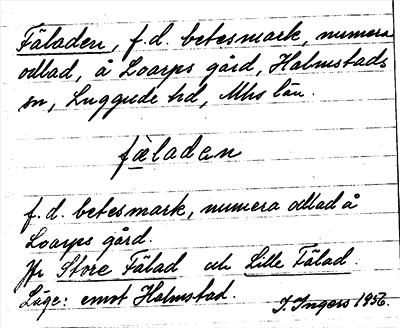 Fäladen, f.d. betesmark, numera
odlad, å Loarps gård, Halmstads
sn, Luggude hd, Mhs län.
fæ̀ladɘn
f.d. betesmark, numera odlad å
Loarps gård.
Jfr Store Fälad och Lille Fälad.
Läge: emot Halmstad.
I. Ingers 1956.